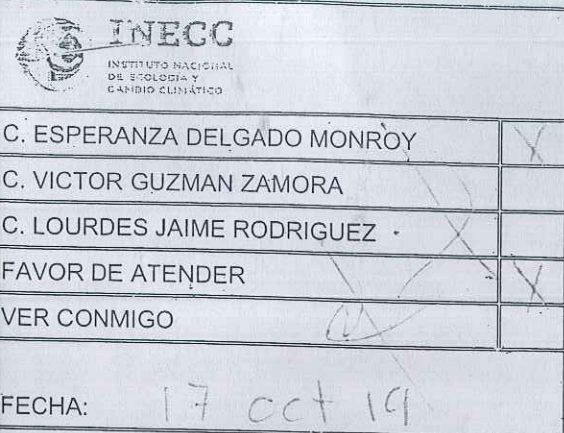 INECC
INSTITUTO NACIONAL
DE ECOLOGÍA Y
CAMBIO CLIMÁTICO
C. ESPERANZA DELGADO MONROY X
C. VICTOR GUZMAN ZAMORA
C. LOURDES JAIME RODRIGUEZ
FAVOR DE ATENDER X
VER CONMIGO
FECHA: 17 oct 19